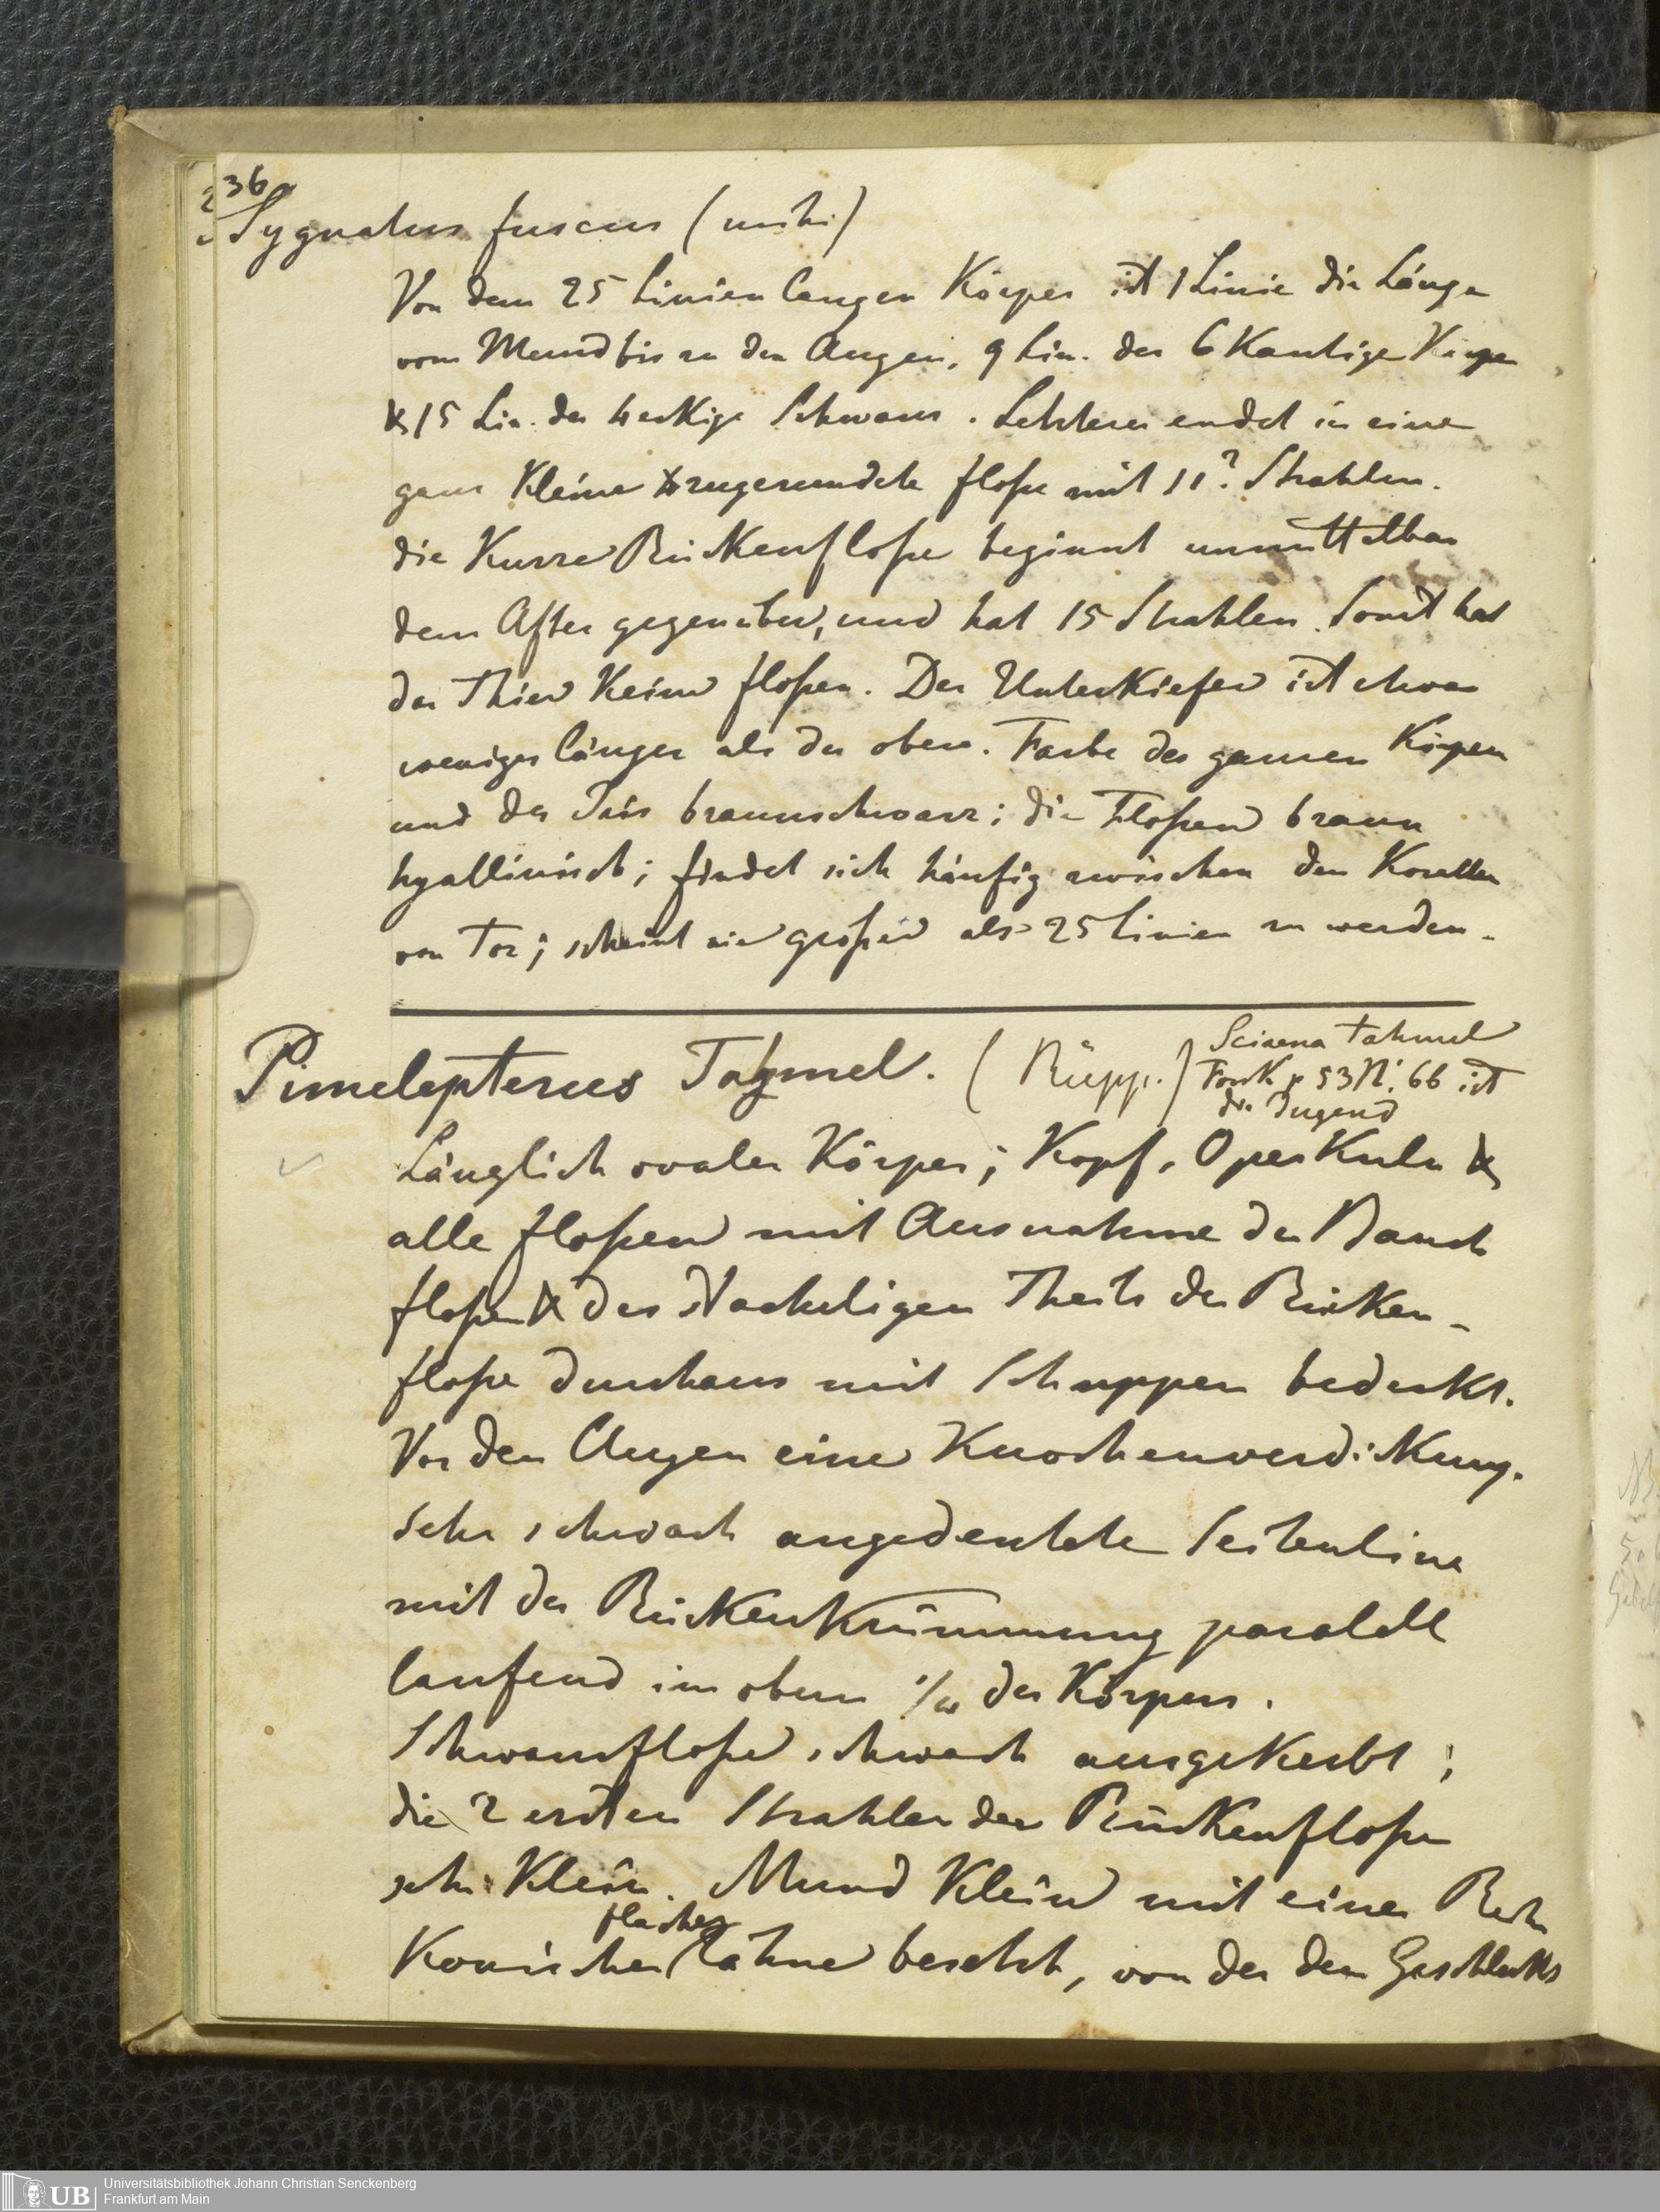 36
Sygnatus fuscus (mihi)
Von dem 25 Linien langen Körper ist 1 Linie die Länge
vom Mund bis zu den Augen, 9 Lin. der 6 Kantige Körper
& 15 Lin. der 4 eckige Schwanz. Letzterer endet in eine
ganz Kleine zugerundete floße mit 11? Strahlen.
die Kurze RückenfloßE beginnt unmittelbar
dem After gegenüber, und hat 15 Strahlen. Sonst hat
das Thier Keine floßen. Der UnterKiefer ist etwas
weniges länger als der obere. Farbe des ganzen Körpers
und der Iris braunschwarz; die Floßen braun
hyallinisch; findet sich häufig zwischen den Korallen
von Tor; scheint nie großer als 25 Linien zu werden.
Pimelepterus Tahmel. (Rüpp.)
Sciaena tahmel
Forsk p 53 N. 66 ist
die Jugend
Länglich ovaler Körper; Kopf, OperKuln &
alle floßen mit Ausnahme der Bauch
floßen & des stacheligen Theils der Rücken-
floße durchaus mit Schuppen bedeckt.
Vor den Augen eine Knochenverdickung.
Sehr schwach angedeutete Seitenline
mit der RückenKrümmung paralell
laufend im obern des Körpers.
Schwanzfloße schwach ausgeKerbt;
die 2 ersten Strahlen der Rückenfloße
sehr Klein. Mund Klein mit einer Reihe
flacher
Konischer Zähne besetzt, von der dem Geschlechts
Universitätsbibliothek Johann Christian Senckenberg
Frankfurt am Main
UB